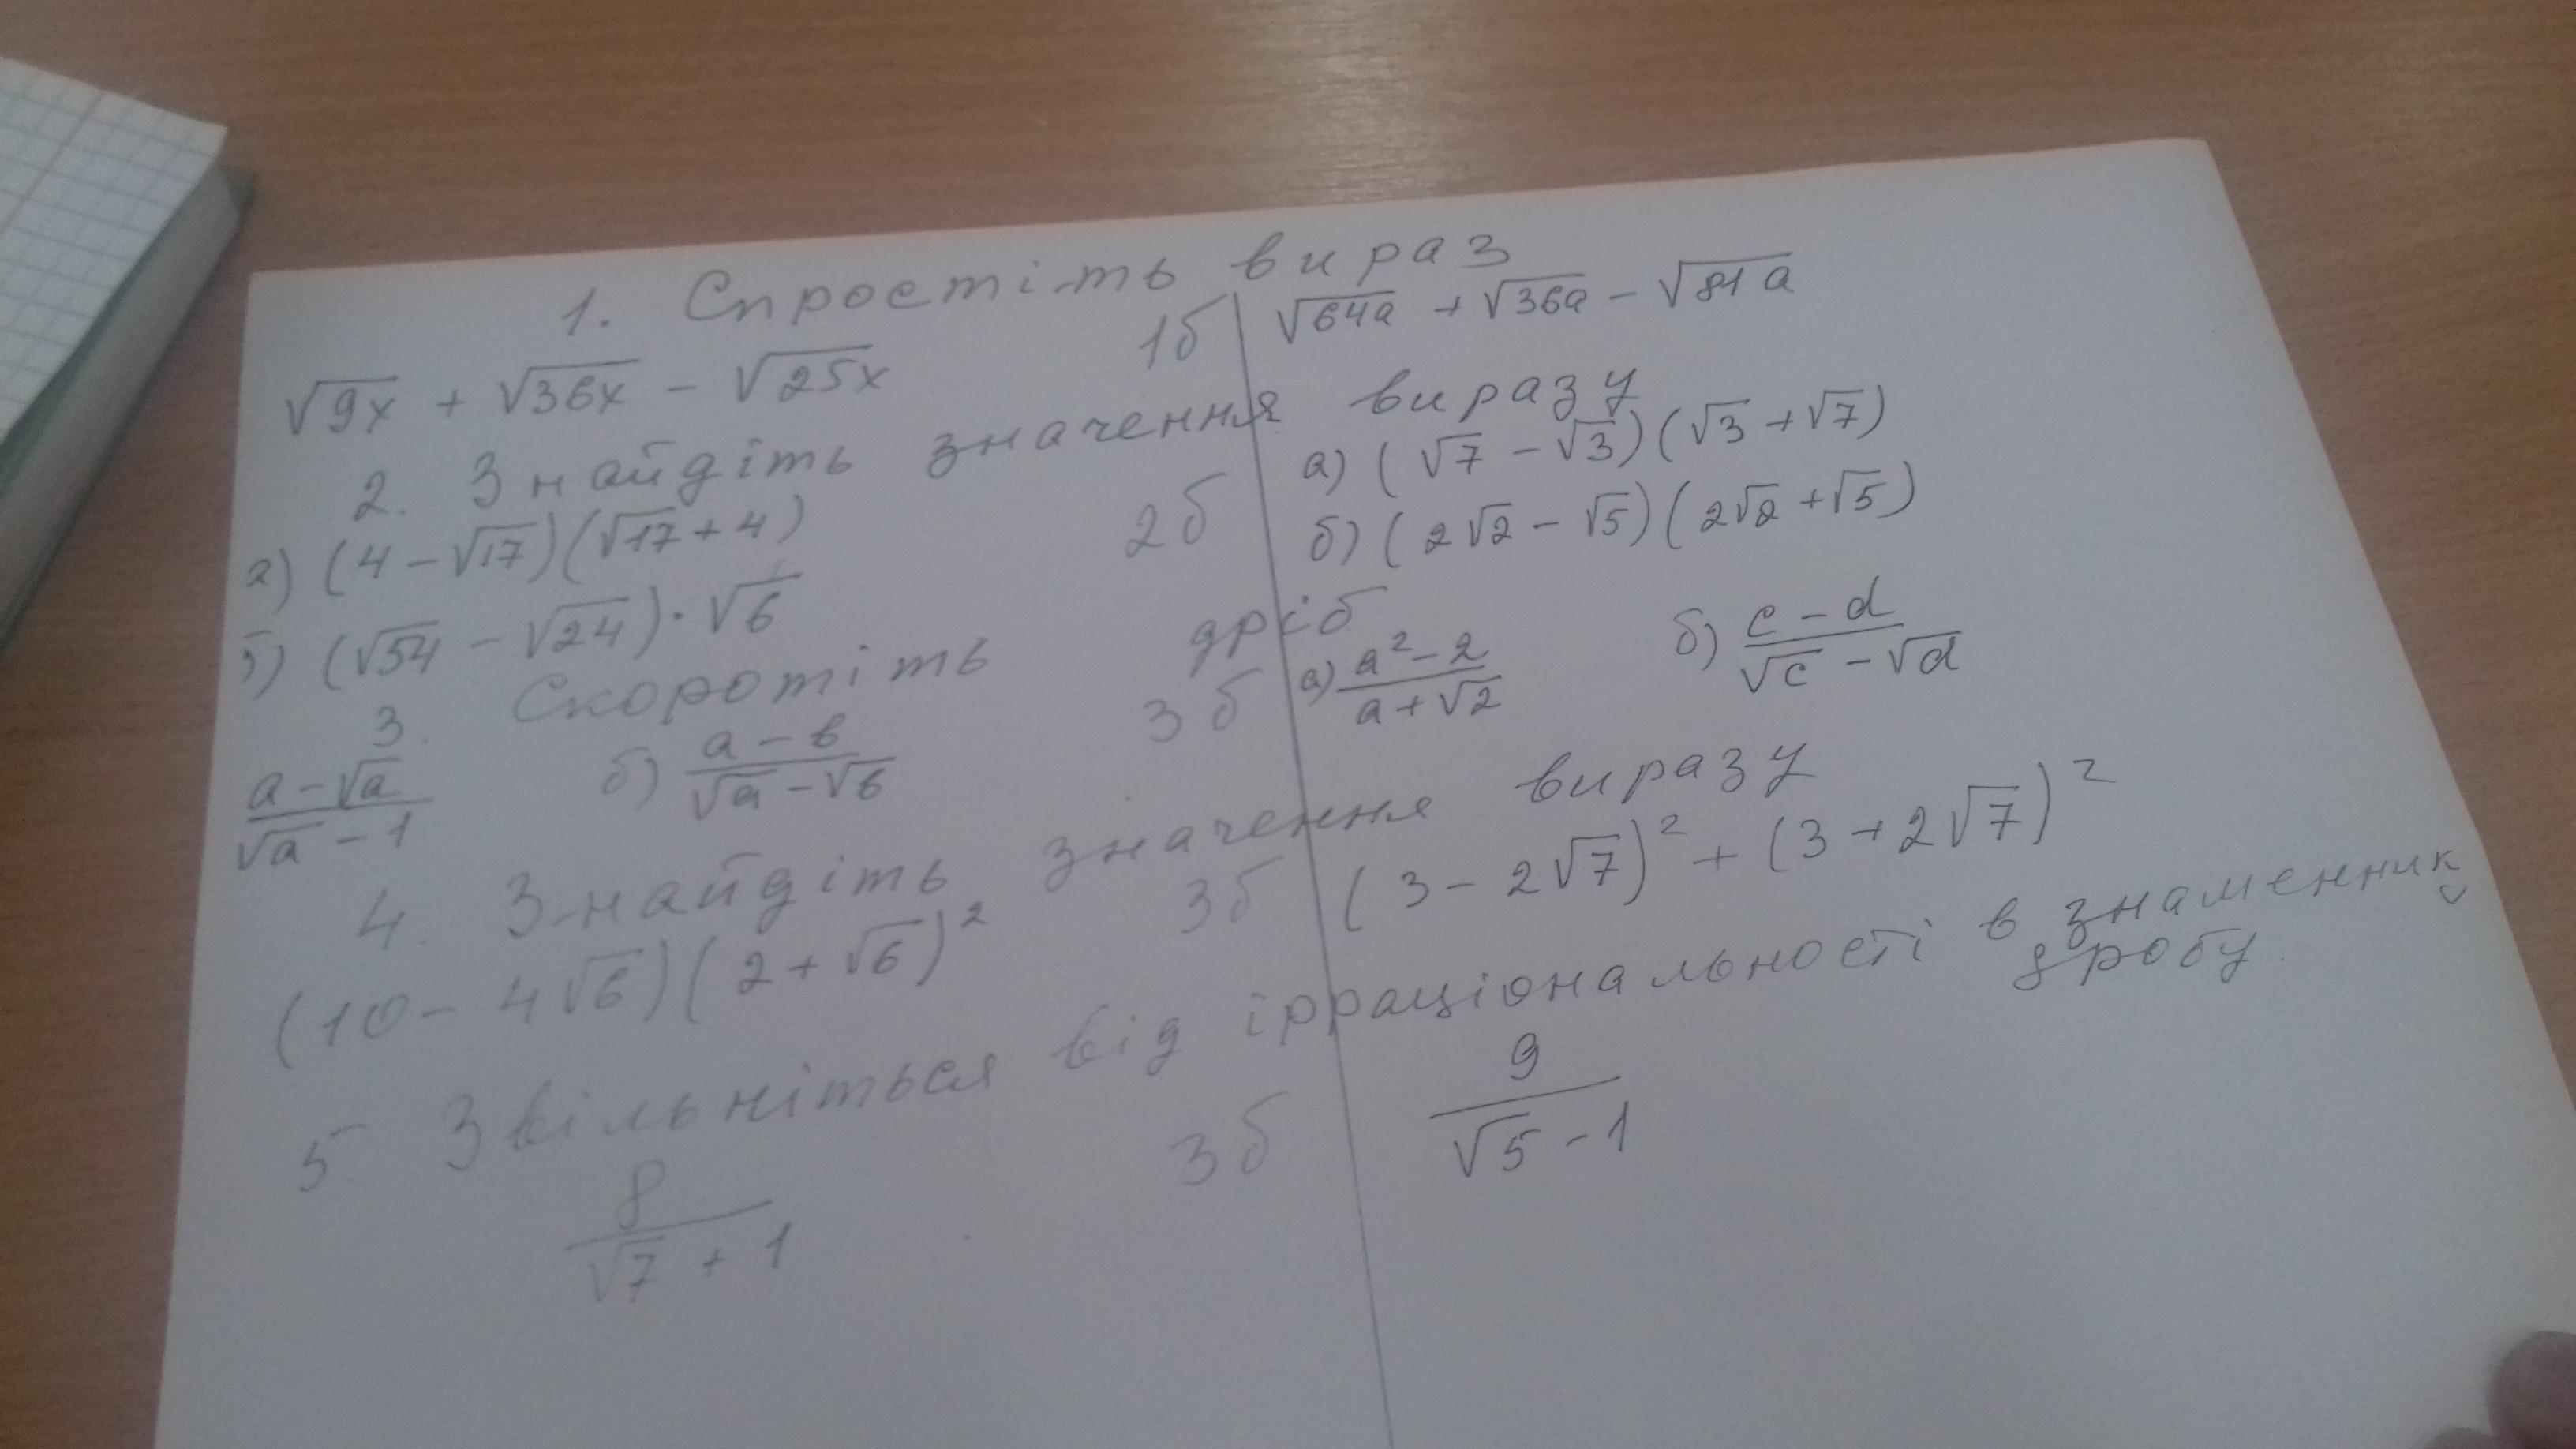 1. Спростіть вираз
√9x + √36x − √25x 1б √64a + √36a − √81a
2. Знайдіть значення виразу
а) (4 − √17)(√17 + 4) 2б а) (√7 − √3)(√3 + √7)
б) (√54 − √24) · √6 б) (2√2 − √5)(2√2 + √5)
3. Скоротіть дріб
(a − √a)/(√a − 1) б) (a − b)/(√a − √b) 3б а) (a² − 2)/(a + √2) б) (c − d)/(√c − √d)
4. Знайдіть значення виразу
(10 − 4√6)(2 + √6)² 3б (3 − 2√7)² + (3 + 2√7)²
5. Звільніться від ірраціональності в знаменнику
дробу
8/(√7 + 1) 3б 9/(√5 − 1)